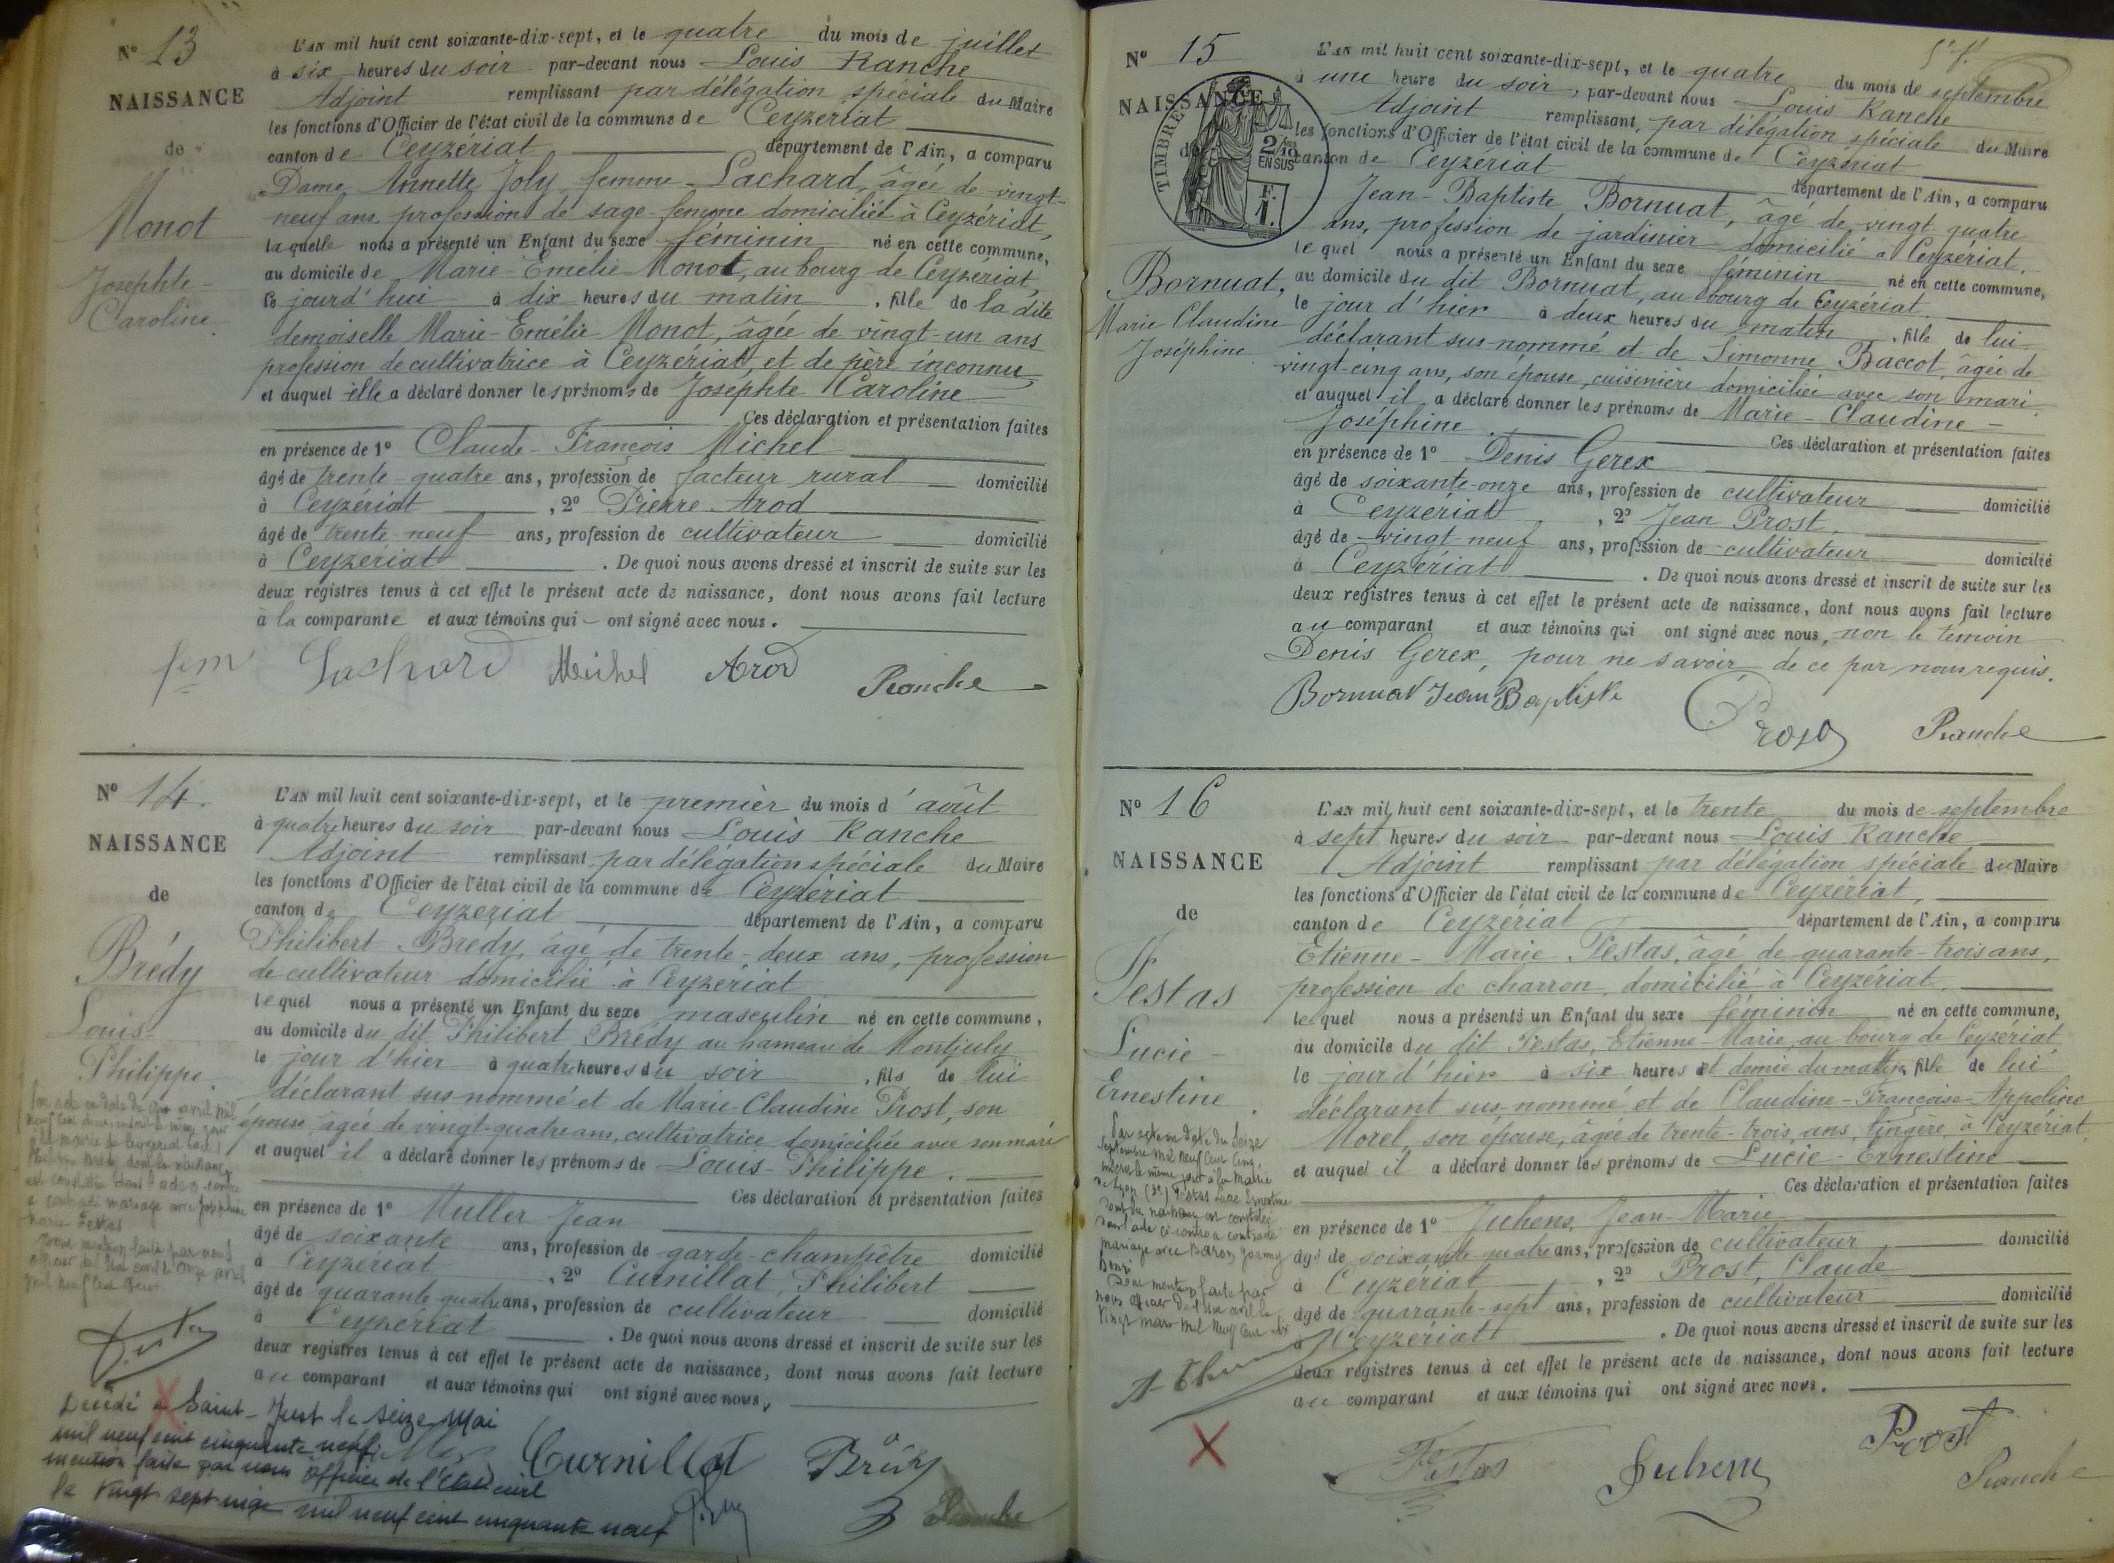 Nº 13
NAISSANCE
de
Monot
Josephte-
Caroline.
L'AN mil huit cent soixante-dix-sept, et le quatre du mois de juillet
à six heures du soir par-devant nous Louis Ranche
Adjoint remplissant par délégation spéciale du Maire
les fonctions d'Officier de l'état civil de la commune de Ceyzériat
canton de Ceyzériat département de l'Ain, a comparu
Dame Annette Joly femme Lachard, âgée de vingt-
neuf ans, profession de sage-femme domiciliée à Ceyzériat,
laquelle nous a présenté un Enfant du sexe féminin né en cette commune,
au domicile de Marie-Emélie Monot, au bourg de Ceyzériat,
ce jourd'hui à dix heures du matin, fille de la dite
demoiselle Marie-Emélie Monot, âgée de vingt-un ans
profession de cultivatrice à Ceyzériat, et de père inconnu,
et auquel elle a déclaré donner les prénoms de Josephte Caroline
Ces déclaration et présentation faites
en présence de 1º Claude-François Michel
âgé de trente-quatre ans, profession de facteur rural domicilié
à Ceyzériat, 2º Pierre Arod
âgé de trente-neuf ans, profession de cultivateur domicilié
à Ceyzériat. De quoi nous avons dressé et inscrit de suite sur les
deux registres tenus à cet effet le présent acte de naissance, dont nous avons fait lecture
à la comparante et aux témoins qui ont signé avec nous.
fem Lachard Michel Arod Ranche
Nº 14.
NAISSANCE
de
Brédy
Louis-
Philippe.
L'AN mil huit cent soixante-dix-sept, et le premier du mois d'août
à quatre heures du soir par-devant nous Louis Ranche
Adjoint remplissant par délégation spéciale du Maire
les fonctions d'Officier de l'état civil de la commune de Ceyzériat
canton de Ceyzeriat département de l'Ain, a comparu
Philibert Brédy, âgé de trente-deux ans, profession
de cultivateur domicilié à Ceyzériat
lequel nous a présenté un Enfant du sexe masculin né en cette commune,
au domicile du dit Philibert Brédy au hameau de Montjuly
le jour d'hier à quatre heures du soir, fils de lui
déclarant sus nommé et de Marie Claudine Prost, son
épouse âgée de vingt-quatre ans, cultivatrice domiciliée avec son mari
et auquel il a déclaré donner les prénoms de Louis-Philippe.
Ces déclaration et présentation faites
en présence de 1º Muller Jean
âgé de soixante ans, profession de garde-champêtre domicilié
à Ceyzériat, 2º Curnillat, Philibert
âgé de quarante quatre ans, profession de cultivateur domicilié
à Ceyzériat. De quoi nous avons dressé et inscrit de suite sur les
deux registres tenus à cet effet le présent acte de naissance, dont nous avons fait lecture
au comparant et aux témoins qui ont signé avec nous,
a contracté mariage avec Joséphine
Marie Festas
Décédé à Saint-Just le seize Mai
mil neuf cent cinquante neuf.
mention faite par nous Officier de l'Etat civil
le vingt sept mai mil neuf cent cinquante neuf
Curnillat Brédy
Ranche
Nº 15
NAISSANCE
de
TIMBRE
2/10 EN SUS
F.
1.
Bornuat,
Marie Claudine
Joséphine.
L'AN mil huit cent soixante-dix-sept, et le quatre du mois de septembre
à une heure du soir, par-devant nous Louis Ranche
Adjoint remplissant par délégation spéciale du Maire
les fonctions d'Officier de l'état civil de la commune de Ceyzériat
canton de Ceyzériat département de l'Ain, a comparu
Jean-Baptiste Bornuat, âgé de vingt quatre
ans, profession de jardinier domicilié à Ceyzériat.
lequel nous a présenté un Enfant du sexe féminin né en cette commune,
au domicile du dit Bornuat, au bourg de Ceyzériat.
le jour d'hier à deux heures du matin, fille de lui
déclarant sus nommé et de Simonne Baccot, âgée de
vingt-cinq ans, son épouse, cuisinière domiciliée avec son mari.
et auquel il a déclaré donner les prénoms de Marie-Claudine-
Joséphine.
Ces déclaration et présentation faites
en présence de 1º Denis Gerex
âgé de soixante-onze ans, profession de cultivateur domicilié
à Ceyzériat, 2º Jean Prost.
âgé de vingt-neuf ans, profession de cultivateur domicilié
à Ceyzériat. De quoi nous avons dressé et inscrit de suite sur les
deux registres tenus à cet effet le présent acte de naissance, dont nous avons fait lecture
au comparant et aux témoins qui ont signé avec nous, non le témoin
Denis Gerex, pour ne savoir de ce par nous requis.
Bornuat Jean Baptiste Prost Ranche
Nº 16
NAISSANCE
de
Festas
Lucie-
Ernestine.
L'AN mil huit cent soixante-dix-sept, et le trente du mois de septembre
à sept heures du soir par-devant nous Louis Ranche
Adjoint remplissant par délégation spéciale du Maire
les fonctions d'Officier de l'état civil de la commune de Ceyzériat,
canton de Ceyzériat département de l'Ain, a comparu
Etienne-Marie Festas, âgé de quarante-trois ans,
profession de charron, domicilié à Ceyzériat.
lequel nous a présenté un Enfant du sexe féminin né en cette commune,
au domicile du dit Festas, Etienne-Marie, au bourg de Ceyzériat
le jour d'hier à six heures et demie du matin, fille de lui
déclarant sus nommé et de Claudine-Françoise-Appoline
Morel, son épouse, âgée de trente-trois ans, lingère, à Ceyzériat,
et auquel il a déclaré donner les prénoms de Lucie-Ernestine
Ces déclaration et présentation faites
en présence de 1º Juhens, Jean-Marie
âgé de soixante-quatre ans, profession de cultivateur domicilié
à Ceyzériat, 2º Prost, Claude
âgé de quarante-sept ans, profession de cultivateur domicilié
à Ceyzériat. De quoi nous avons dressé et inscrit de suite sur les
deux registres tenus à cet effet le présent acte de naissance, dont nous avons fait lecture
au comparant et aux témoins qui ont signé avec nous.
Par acte en date du Seize
Septembre mil neuf cent cinq,
inscrit le même jour à la Mairie
de Lyon (3e) Festas Lucie Ernestine
dont la naissance est constatée
dans l'acte ci-contre a contracté
mariage avec
Pour mention faite par
nous officier de l'état civil le
Vingt mars mil neuf cent
Festas Juhens Prost Ranche